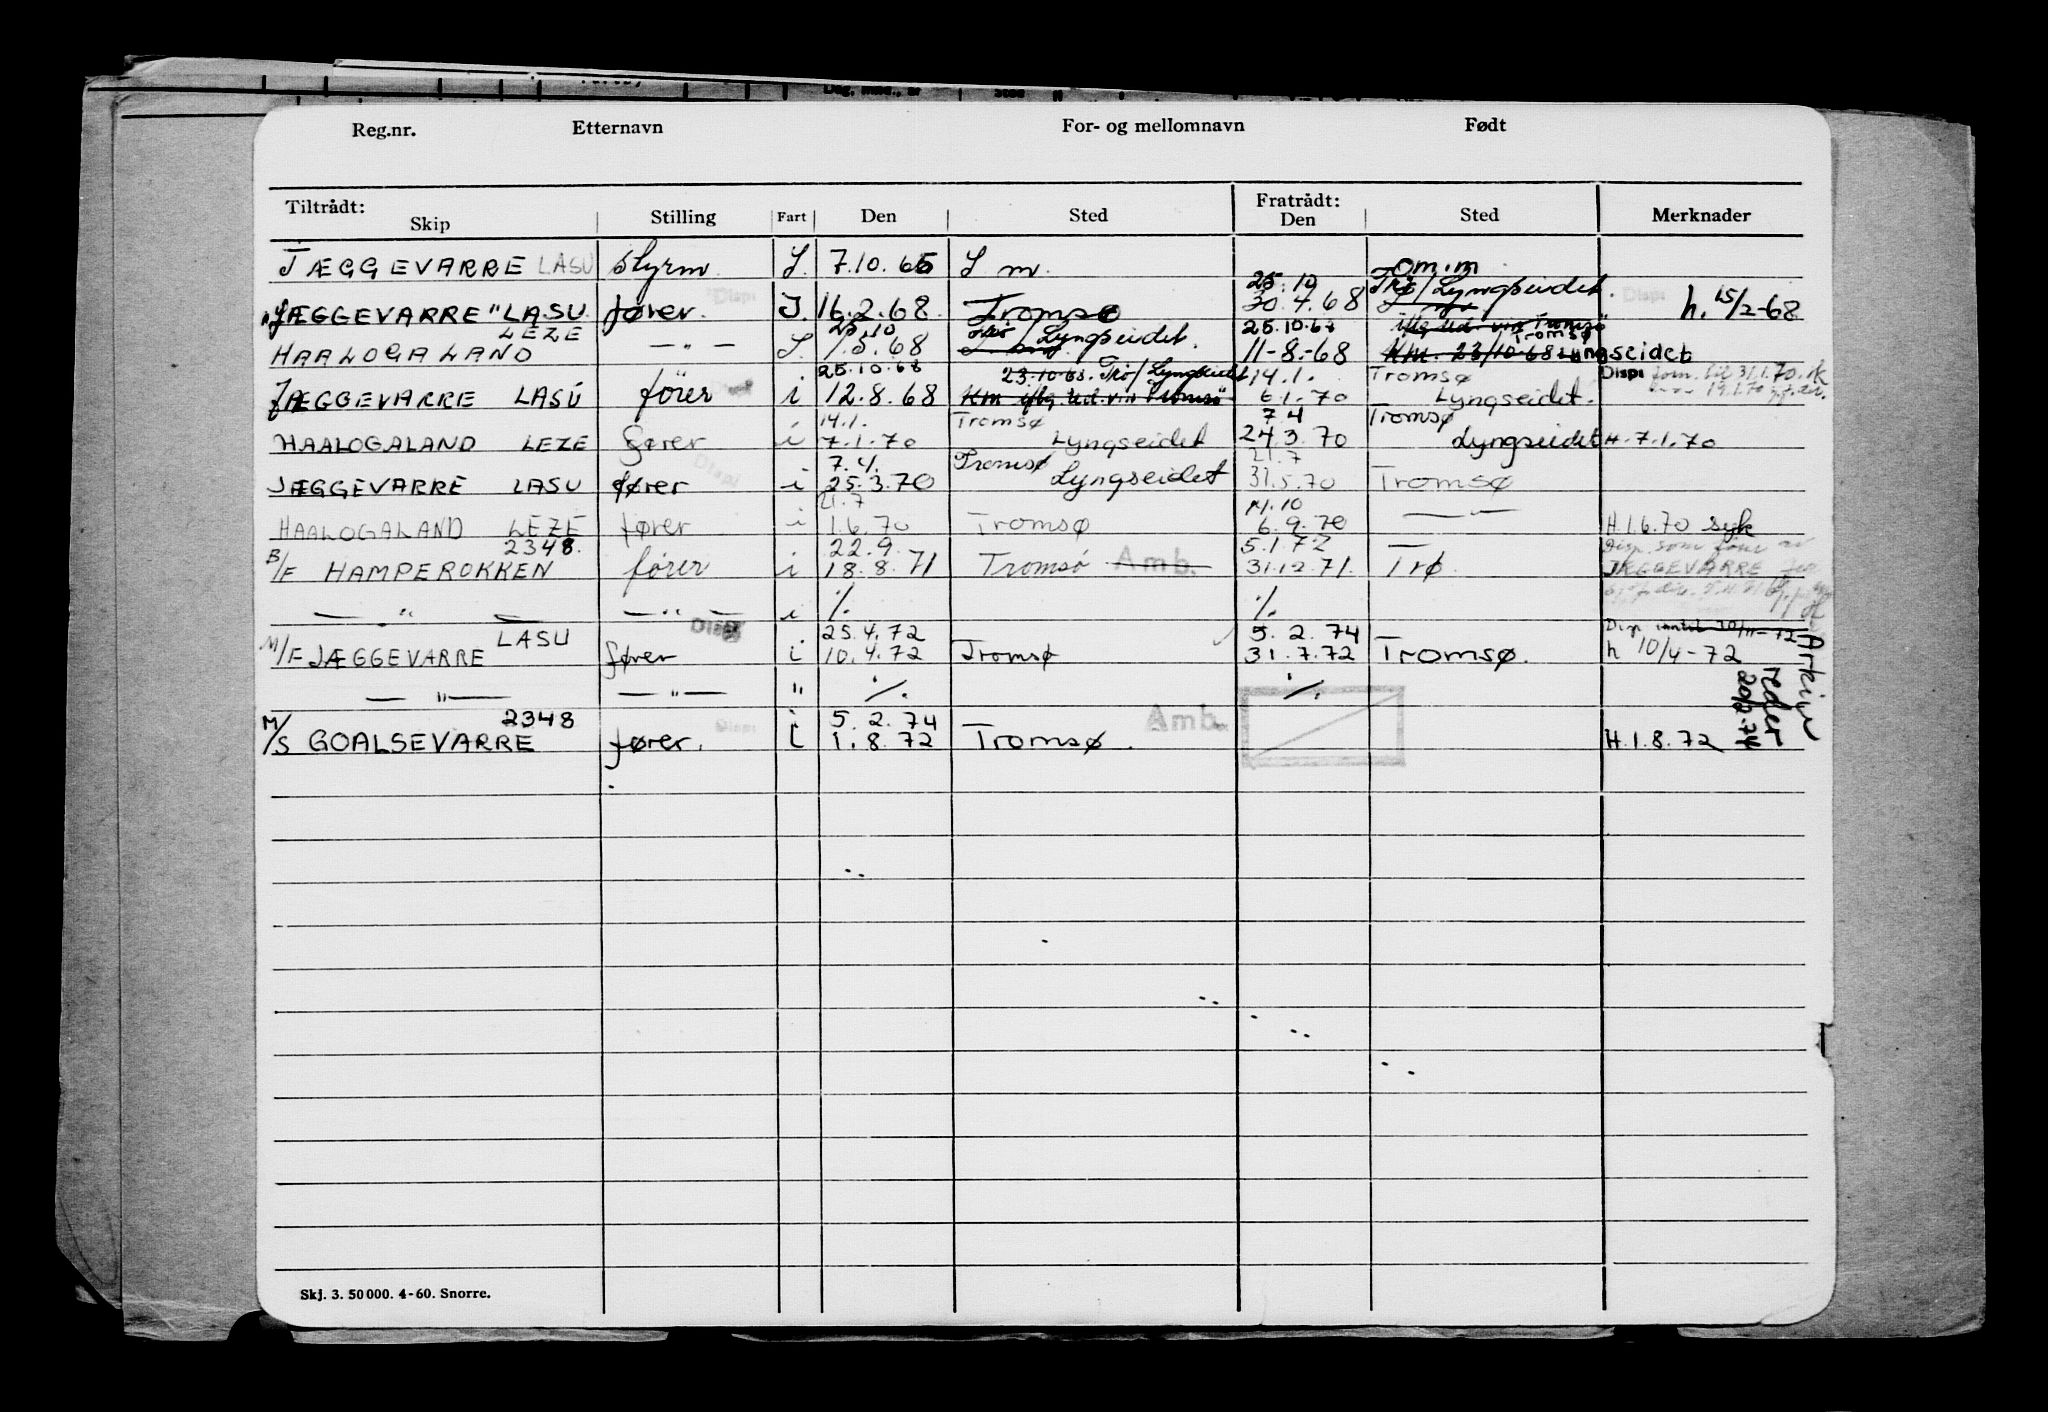 Reg.nr. Etternavn For- og mellomnavn Født
Tiltrådt: Fratrådt:
Skip Stilling Fart Den Sted Den Sted Merknader
om.m
JÆGGEVARRE LASU styrm. S. 7.10.65 S m.
25.10 Trø/Lyngseidet.
"JÆGGEVARRE" LASU fører. I. 16.2.68 Tromsø 30.4.68 h. 15/2-68
LEZE 25.10 Trø/Lyngseidet. 25.10.68 Tromsø
HAALOGALAND — " — S. 1.5.68 11-8.-68 Km. 23/10-68 Lyngseidet
25.10.68 23.10.68. Trø/Lyngseidet 14.1. Tromsø Disp
JÆGGEVARRE LASU fører i 12.8.68 6.1.70 Lyngseidet.
14.1. Tromsø 7.4 Tromsø
HAALOGALAND LEZE fører i 7.1.70 Lyngseidet 24.3.70 Lyngseidet H.7.1.70
7.4. Tromsø 21.7
JÆGGEVARRE LASU fører i 25.3.70 Lyngseidet 31.5.70 Tromsø
21.7 11.10
HAALOGALAND LEZE fører i 1.6.70 Tromsø 6.9.70 — " — H.1.6.70 syk
2348. 22.9. 5.1.72 —
B/F HAMPEROKKEN fører i 18.8.71 Tromsø Amb. 31.12.71. Trø. JÆGGEVARRE
— " — — " — i ./. ./.
LASU Disp 25.4.72 5.2.74 — Disp. inntil 20/11-72
M/F JÆGGEVARRE fører i 10.4.72 Tromsø 31.7.72 Tromsø. h 10/4-72
— " — — " — " ./. ./.
2348 Disp i 5.2.74 Amb.
M/S GOALSEVARRE fører. i 1.8.72 Tromsø. H.1.8.72
Arkiv
Skj. 3. 50 000. 4-60. Snorre.